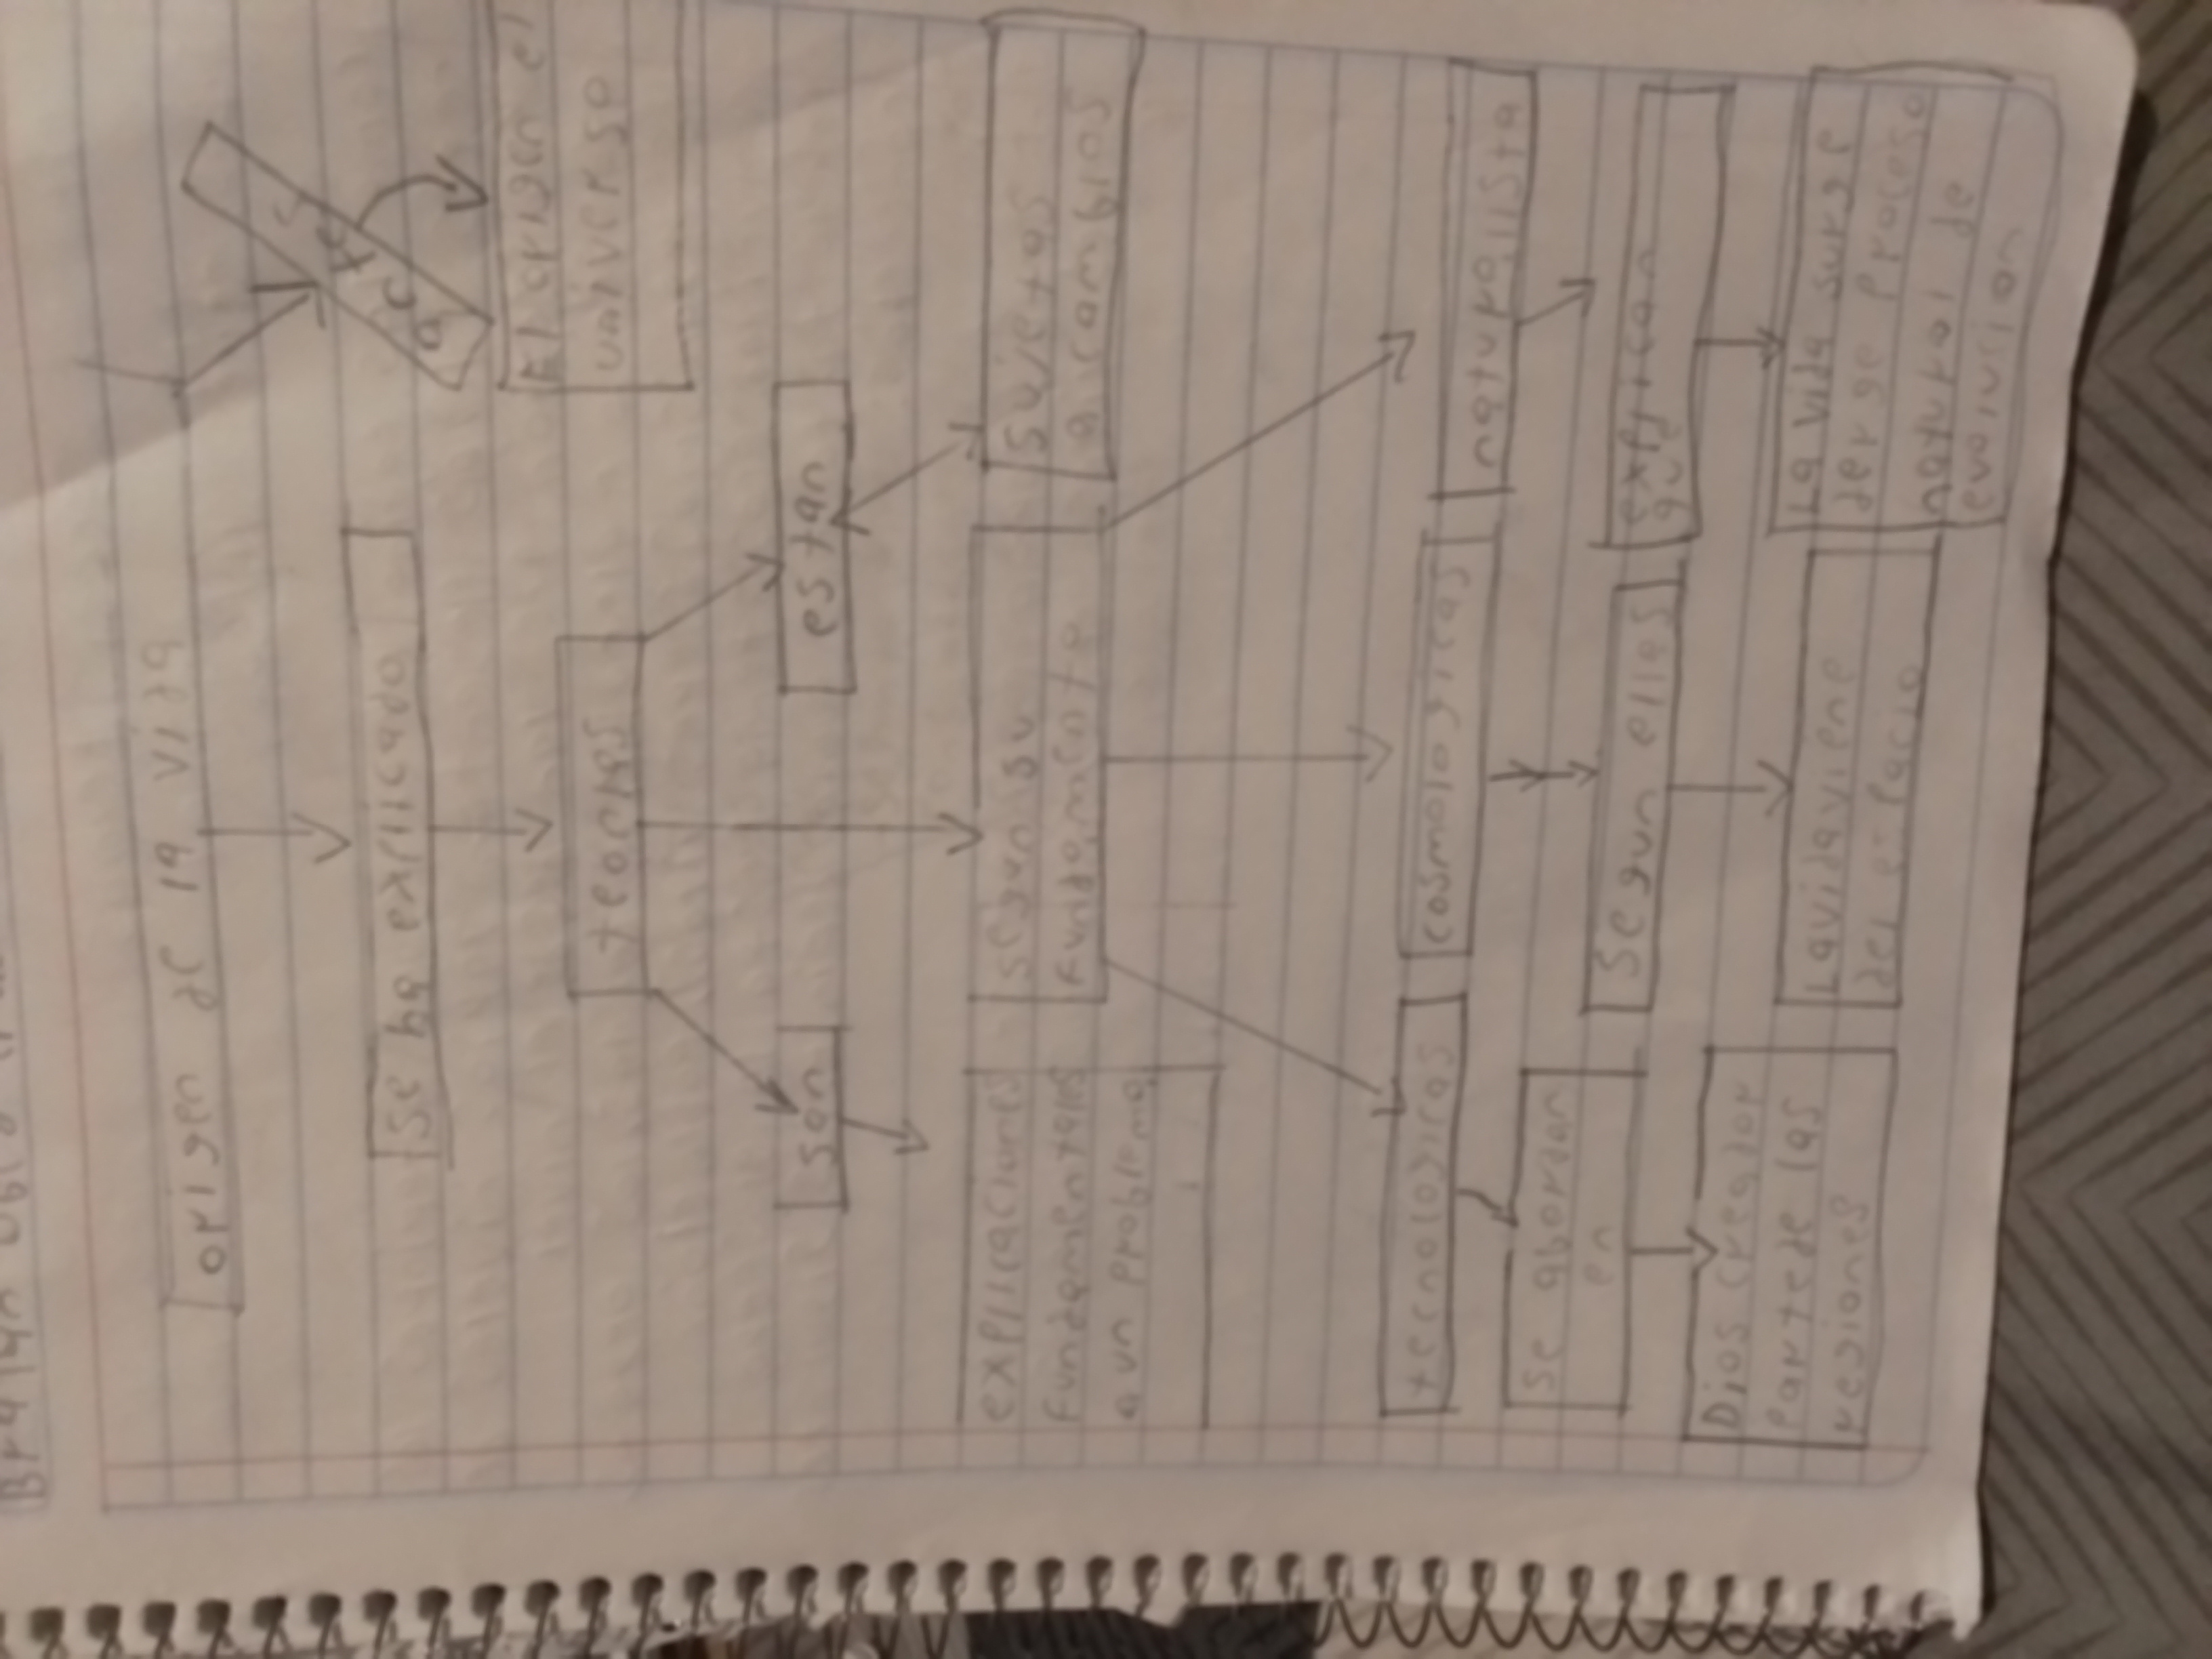 origen de la vida
se ha explicado
El origen el
universo
teorias
son
estan
explicaciones
fundamentales
a un problema
segun su
fundamento
sujetas
a cambios
tecnologicas
cosmologicas
naturalista
se abordan
en
Segun ellas
explican
que
Dios creador
parte de las
regiones
La vida viene
del espacio
La vida surge
der ge proceso
natural de
evolucion